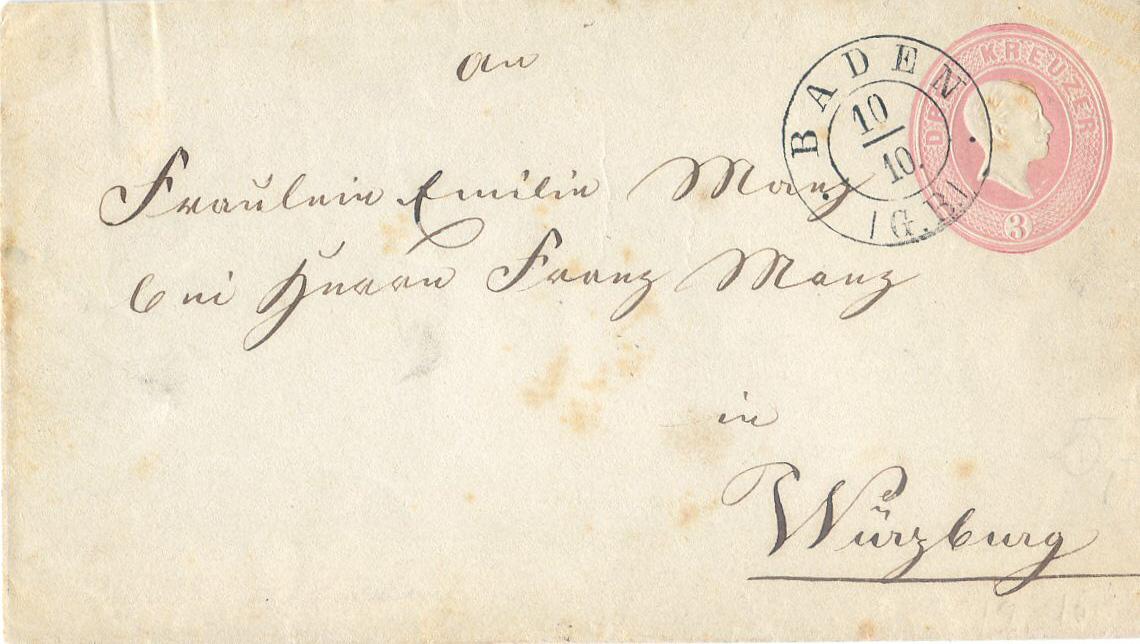 An
BADEN
10
10.
G. BA
DREI KREUZER
3
Fräulein Emilie Manz
bei Herrn Franz Manz
in
Würzburg